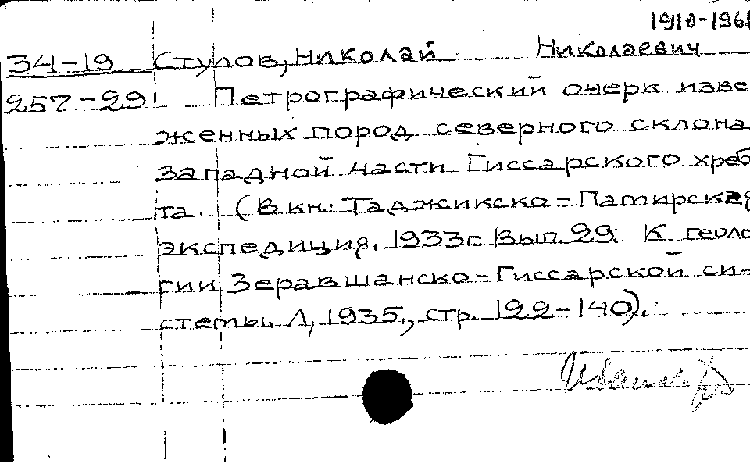 1910-196
34-19 Стулов, Николай Николаевич
257-29 Петрографический очерк изве
женных пород северного склона
западной части Гиссарского хреб
та. (В кн: Таджикско-Памирская
экспедиция, 1933г Вып. 29 К геоло
гии Зеравшанско-Гиссарской си-
стемы. Л, 1935, стр. 122-140).